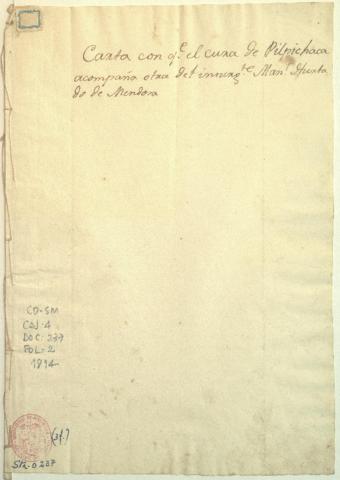 Carta con q.e el cura de Pilpichaca
acompaña otra del insurg.te Man.l Hurta
do de Mendosa
CO-SM
CAJ. 4
DOC: 237
FOL= 2
1814
(2f.)